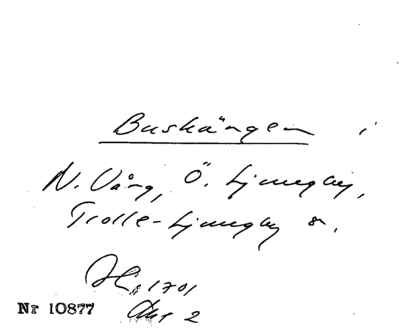 Buskängen i
N. Vång, Ö. Ljungby,
Trolle-Ljungby s.
1701
Akt 2
Nr 10877